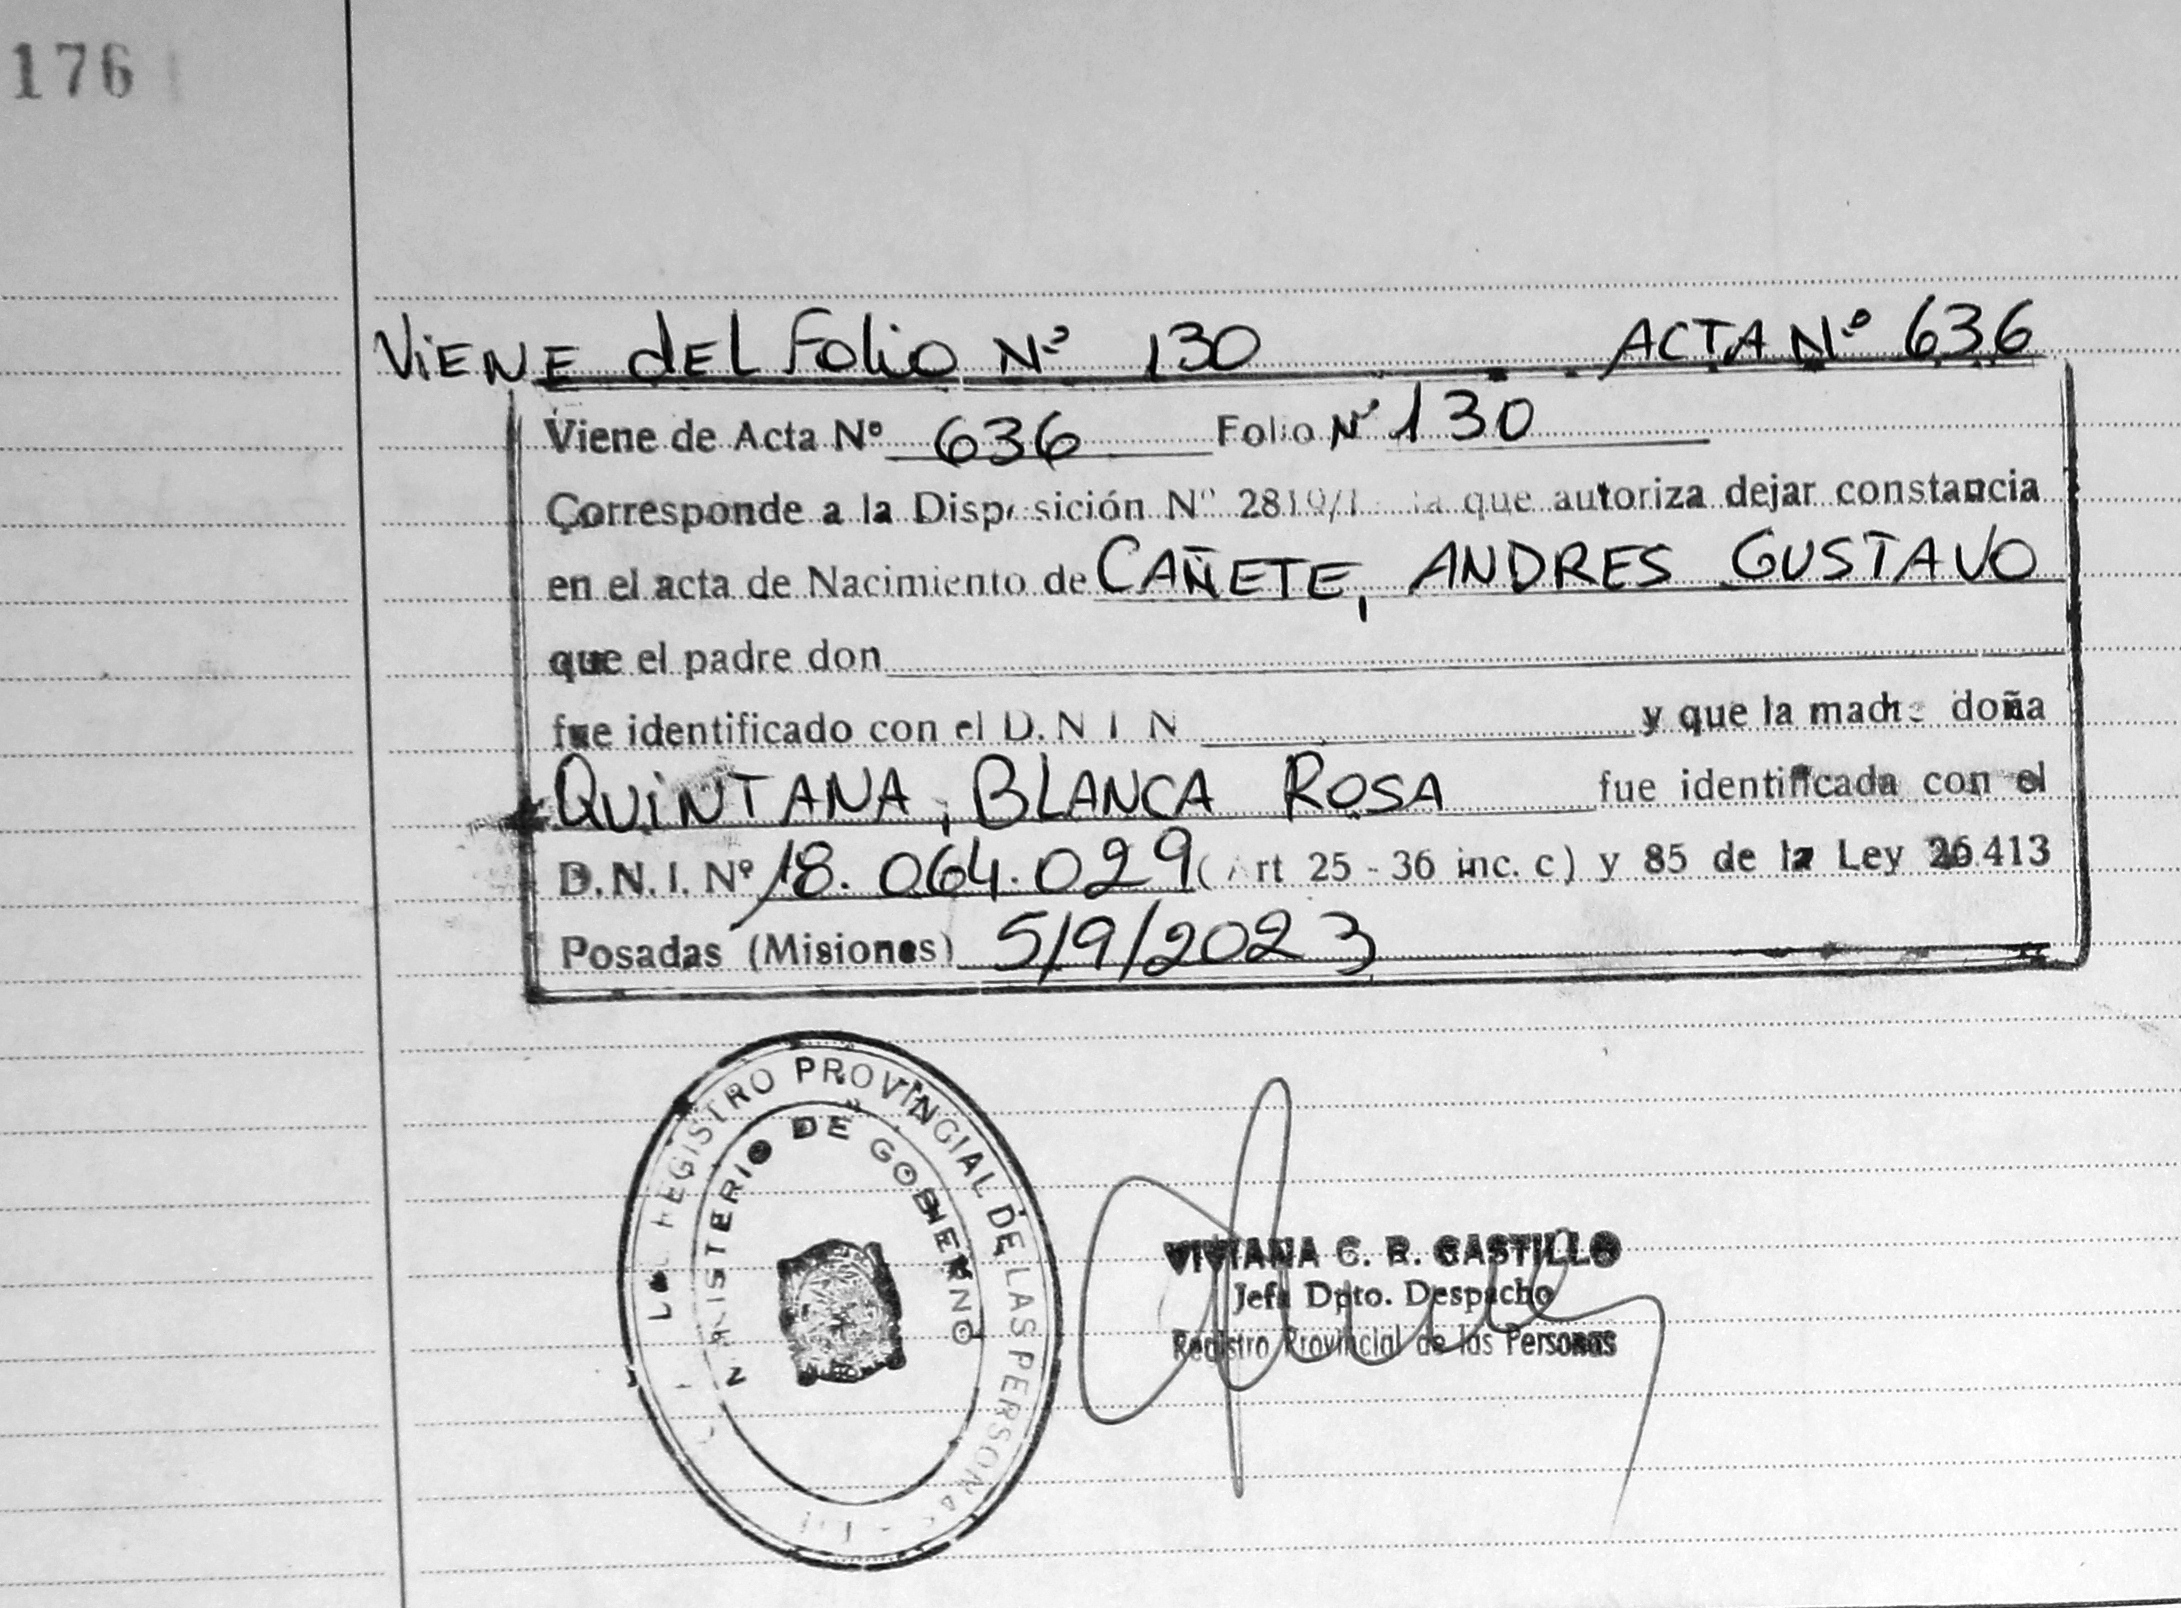 176
ViENE dEL Folio Nº 130 ACTA Nº 636
Viene de Acta Nº 636 Folio Nº 130
Corresponde a la Disposición Nº 2819/1 la que autoriza dejar constancia
en el acta de Nacimiento de CAÑETE, ANDRES GUSTAVO
que el padre don
fue identificado con el D. N I N y que la madre doña
QUiNTANA, BLANCA ROSA fue identificada con el
D. N. I. Nº 18.064.029 (Art 25 - 36 inc. c) y 85 de la Ley 26.413
Posadas (Misiones) 5/9/2023
REGISTRO PROVINCIAL DE LAS PERSONAS
MINISTERIO DE GOBIERNO
VIVIANA C. R. CASTILLO
Jefa Dpto. Despacho
Registro Provincial de las Personas